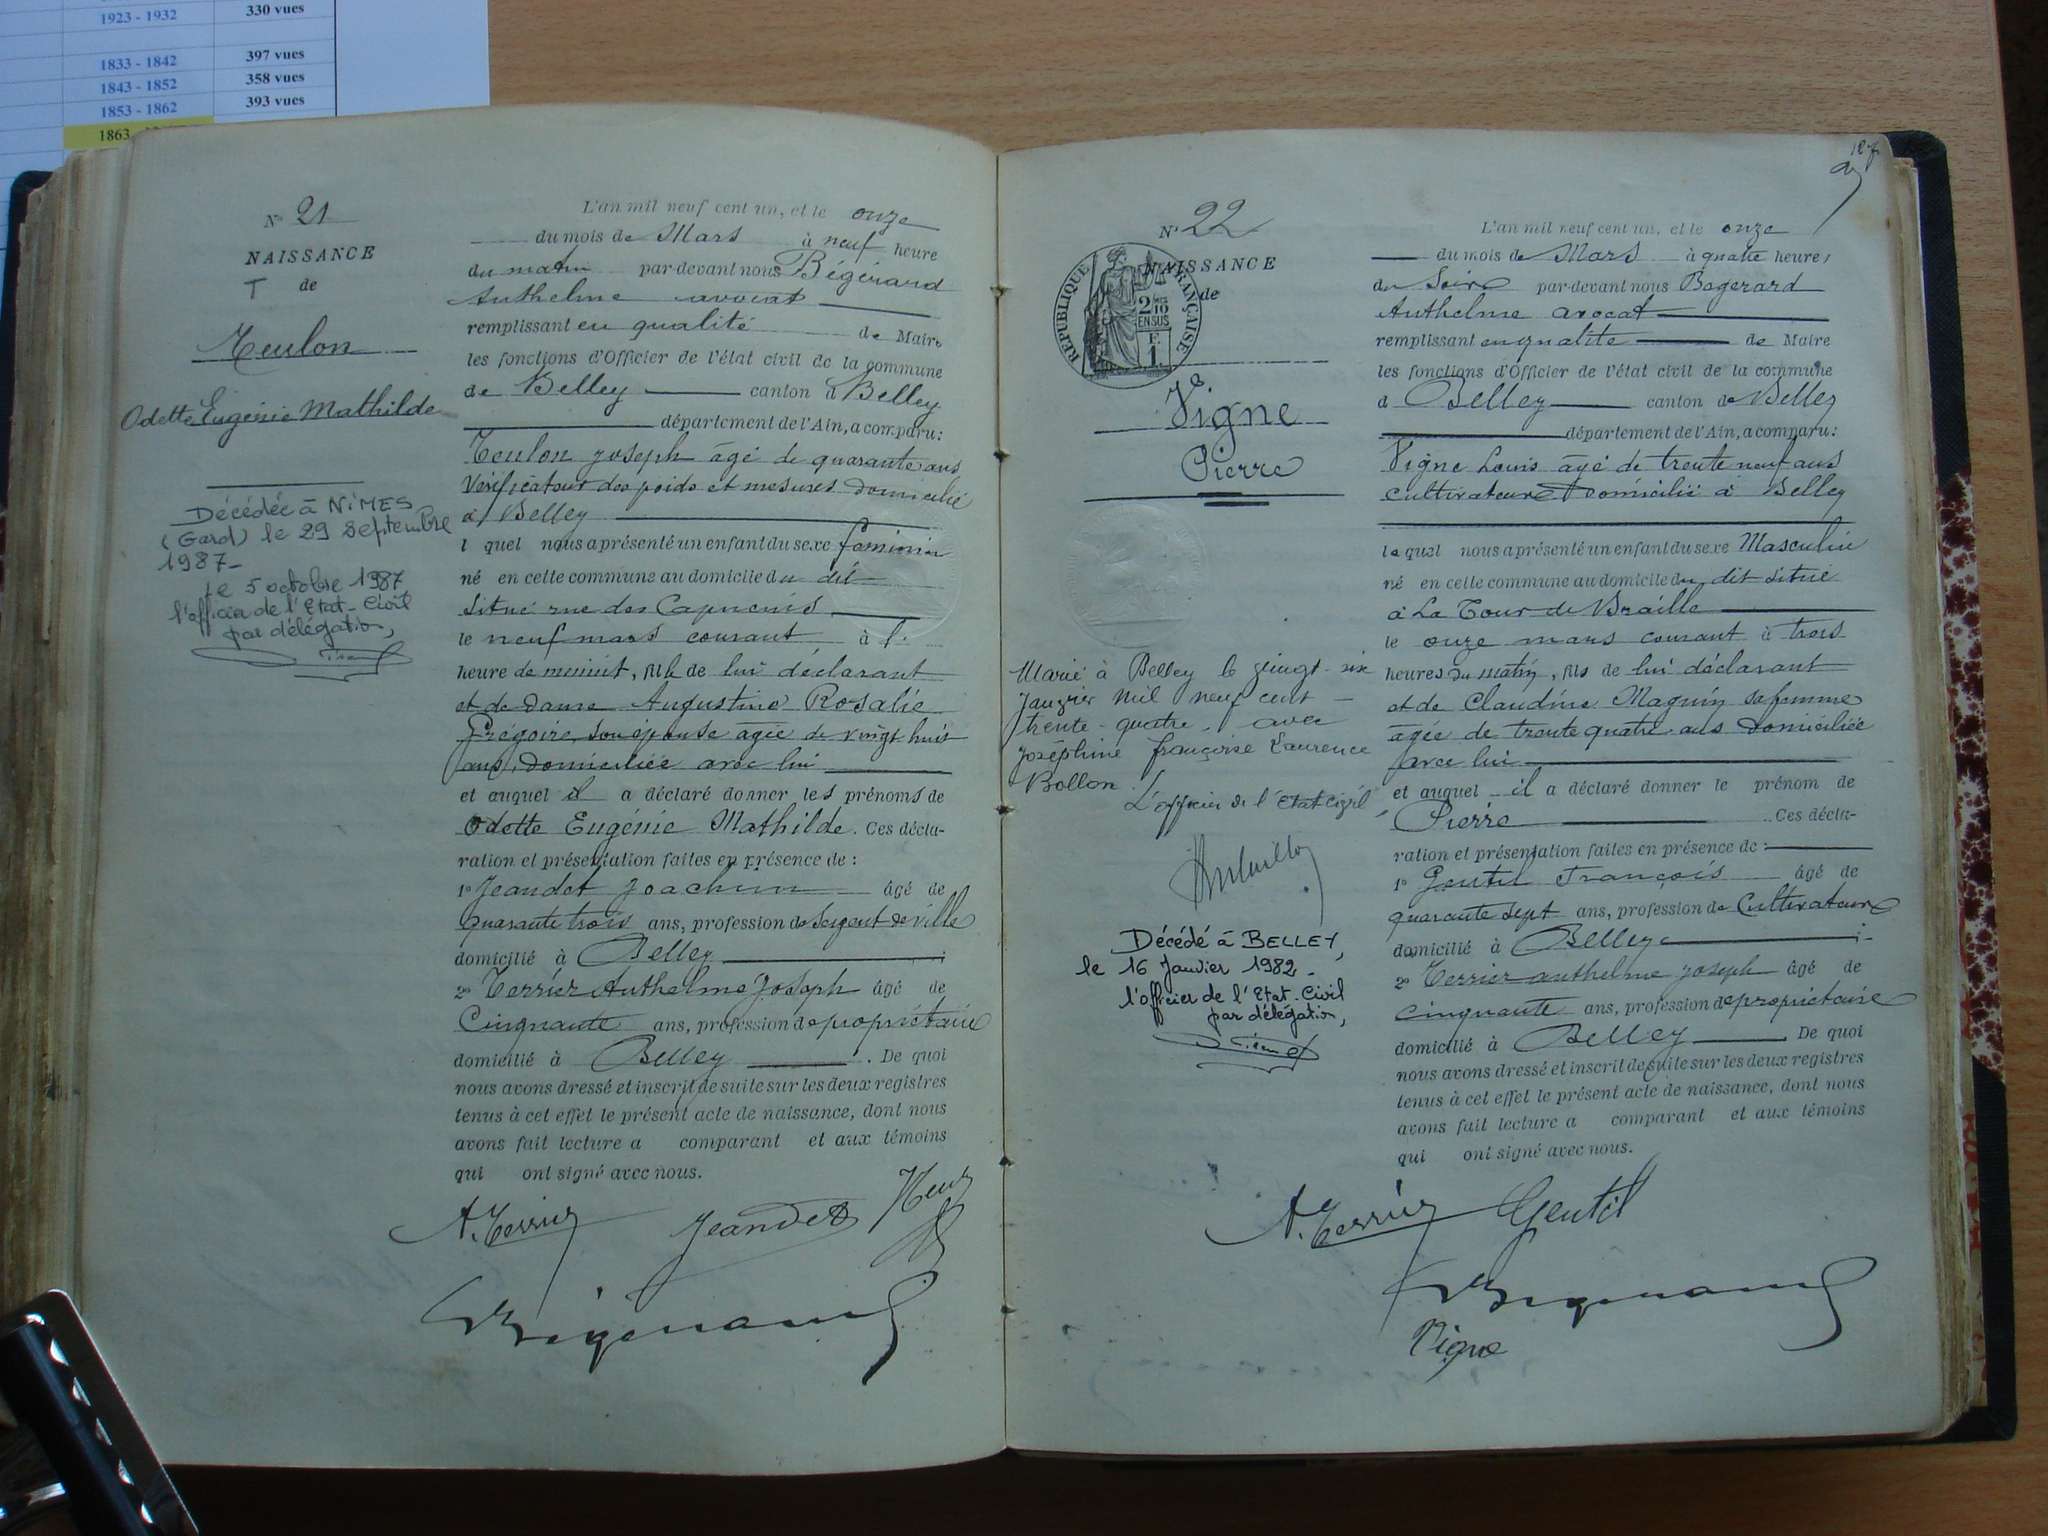 1923 - 1932 330 vues
1833 - 1842 397 vues
1843 - 1852 358 vues
1853 - 1862 393 vues
1863
N° 21
NAISSANCE
T de
Teulon
Odette Eugénie Mathilde
Décédée à NîMES
(Gard) le 29 septembre
1987-
le 5 octobre 1987
l'officier de l'Etat-Civil
par délégation,
L'an mil neuf cent un, et le onze
du mois de Mars à neuf heure
du matin par-devant nous Bégérard
Anthelme avocat
remplissant en qualité de Maire
les fonctions d'Officier de l'état civil de la commune
de Belley canton d Belley
département de l'Ain, a comparu:
Teulon Joseph âgé de quarante ans
Vérificateur des poids et mesures domicilié
à Belley
l quel nous a présenté un enfant du sexe féminin
né en cette commune au domicile du dit
situé rue des Capucins
le neuf mars courant à l'
heure de minuit, fille de lui déclarant
et de dame Augustine Rosalie
Grégoire, son épouse agée de vingt huit
ans, domiciliée avec lui
et auquel il a déclaré donner les prénoms de
Odette Eugénie Mathilde. Ces décla-
ration et présentation faites en présence de :
1° Jeandet Joachim âgé de
quarante trois ans, profession de Sergent de ville
domicilié à Belley
2° Terrier Anthelme Joseph âgé de
Cinquante ans, profession de propriétaire
domicilié à Belley. De quoi
nous avons dressé et inscrit de suite sur les deux registres
tenus à cet effet le présent acte de naissance, dont nous
avons fait lecture a comparant et aux témoins
qui ont signé avec nous.
A. Terrier Jeandet
Bégérard
127
N° 22
NAISSANCE
de
RÉPUBLIQUE FRANÇAISE
2/10
EN SUS
E
1
Vigne
Pierre
Marié à Belley le vingt-six
Janvier mil neuf cent
trente-quatre, avec
Joséphine Françoise Laurence
Bollon
L'officier de l'Etat Civil,
Décédé à BELLEY,
le 16 Janvier 1982.
l'officier de l'Etat-Civil
par délégation,
L'an mil neuf cent un, et le onze
du mois de Mars à quatre heures
du Soir par-devant nous Begerard
Anthelme avocat
remplissant en qualité de Maire
les fonctions d'Officier de l'état civil de la commune
d Belley canton de Belley
département de l'Ain, a comparu:
Vigne Louis âgé de trente neuf ans
cultivateur domicilié à Belley
lequel nous a présenté un enfant du sexe Masculin
né en cette commune au domicile du dit situé
à La Tour de Braille
le onze mars courant à trois
heures du matin, fils de lui déclarant
et de Claudine Magnin sa femme
agée de trente quatre ans domiciliée
avec lui
et auquel il a déclaré donner le prénom de
Pierre. Ces décla-
ration et présentation faites en présence de :
1° Gentil François âgé de
quarante sept ans, profession de Cultivateur
domicilié à Belley
2° Terrier anthelme joseph âgé de
cinquante ans, profession de propriétaire
domicilié à Belley De quoi
nous avons dressé et inscrit de suite sur les deux registres
tenus à cet effet le présent acte de naissance, dont nous
avons fait lecture a comparant et aux témoins
qui ont signé avec nous.
A. Terrier Gentil
Bégérard
Vigne